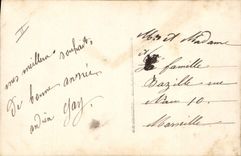 II
nos meilleurs souhaits
De bonne année
Mr et Madame
et famille
Bazille rue
10.
Marseille